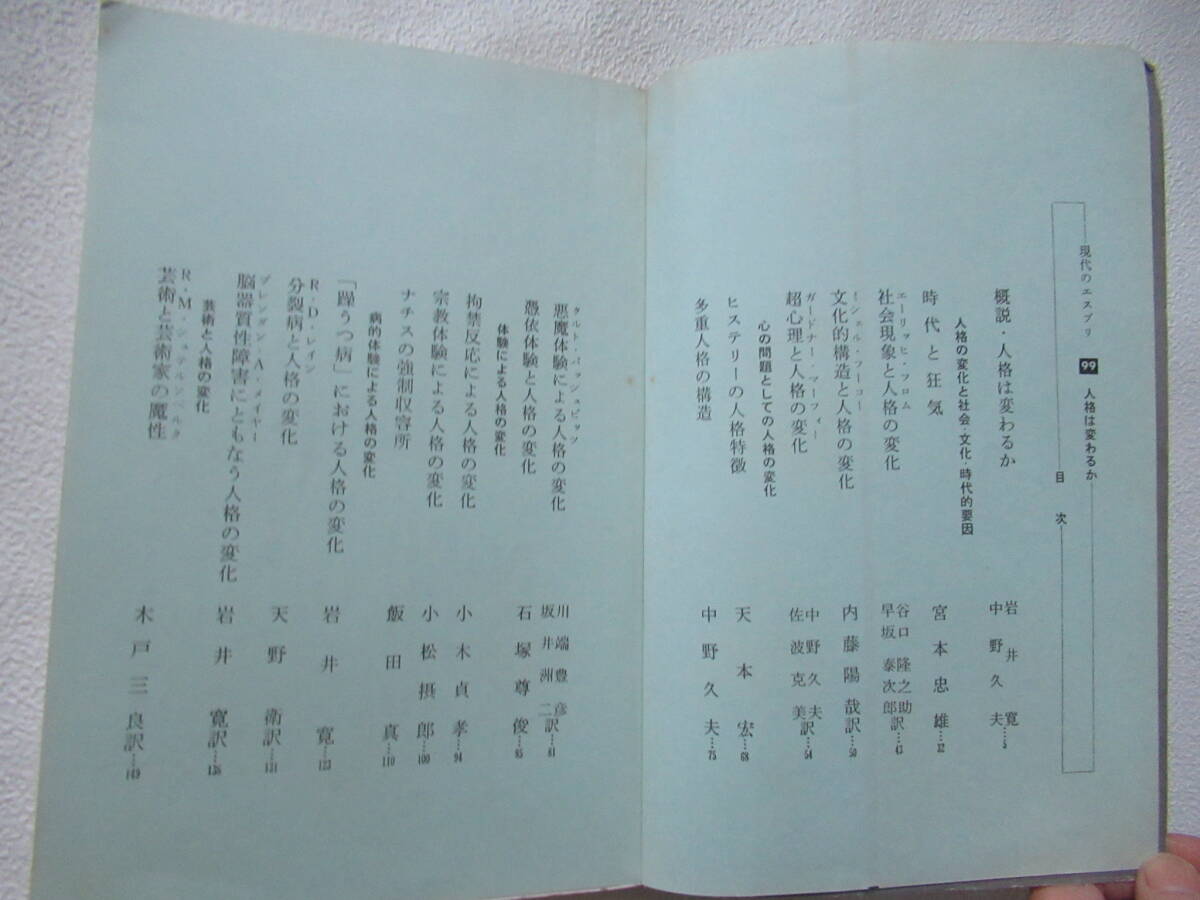 現代のエスプリ 99 人格は変わるか
目次
概説・人格は変わるか 岩井 寛 中野久夫…5
人格の変化と社会・文化・時代的要因
時代と狂気 宮本忠雄…32
エーリッヒ・フロム
社会現象と人格の変化 谷口隆之助 早坂泰次郎訳…43
ミシェル・フーコー
文化的構造と人格の変化 内藤陽哉訳…50
ガードナー・マーフィー
超心理と人格の変化 中野久夫 佐波克美訳…54
心の問題としての人格の変化
ヒステリーの人格特徴 天本 宏…68
多重人格の構造 中野久夫…75
悪魔体験による人格の変化 川端豊彦 坂井洲二訳…81
憑依体験と人格の変化 石塚尊俊…85
体験による人格の変化
拘禁反応による人格の変化 小木貞孝…94
宗教体験による人格の変化 小松摂郎…100
ナチスの強制収容所 飯田 真…110
病的体験による人格の変化
「躁うつ病」における人格の変化 岩井 寛…123
R・D・レイン
分裂病と人格の変化 天野 衛訳…131
ブレンダン・A・メイヤー
脳器質性障害にともなう人格の変化 岩井 寛訳…136
芸術と人格の変化
R・M・シュテルンベルク
芸術と芸術家の魔性 木戸三良訳…149